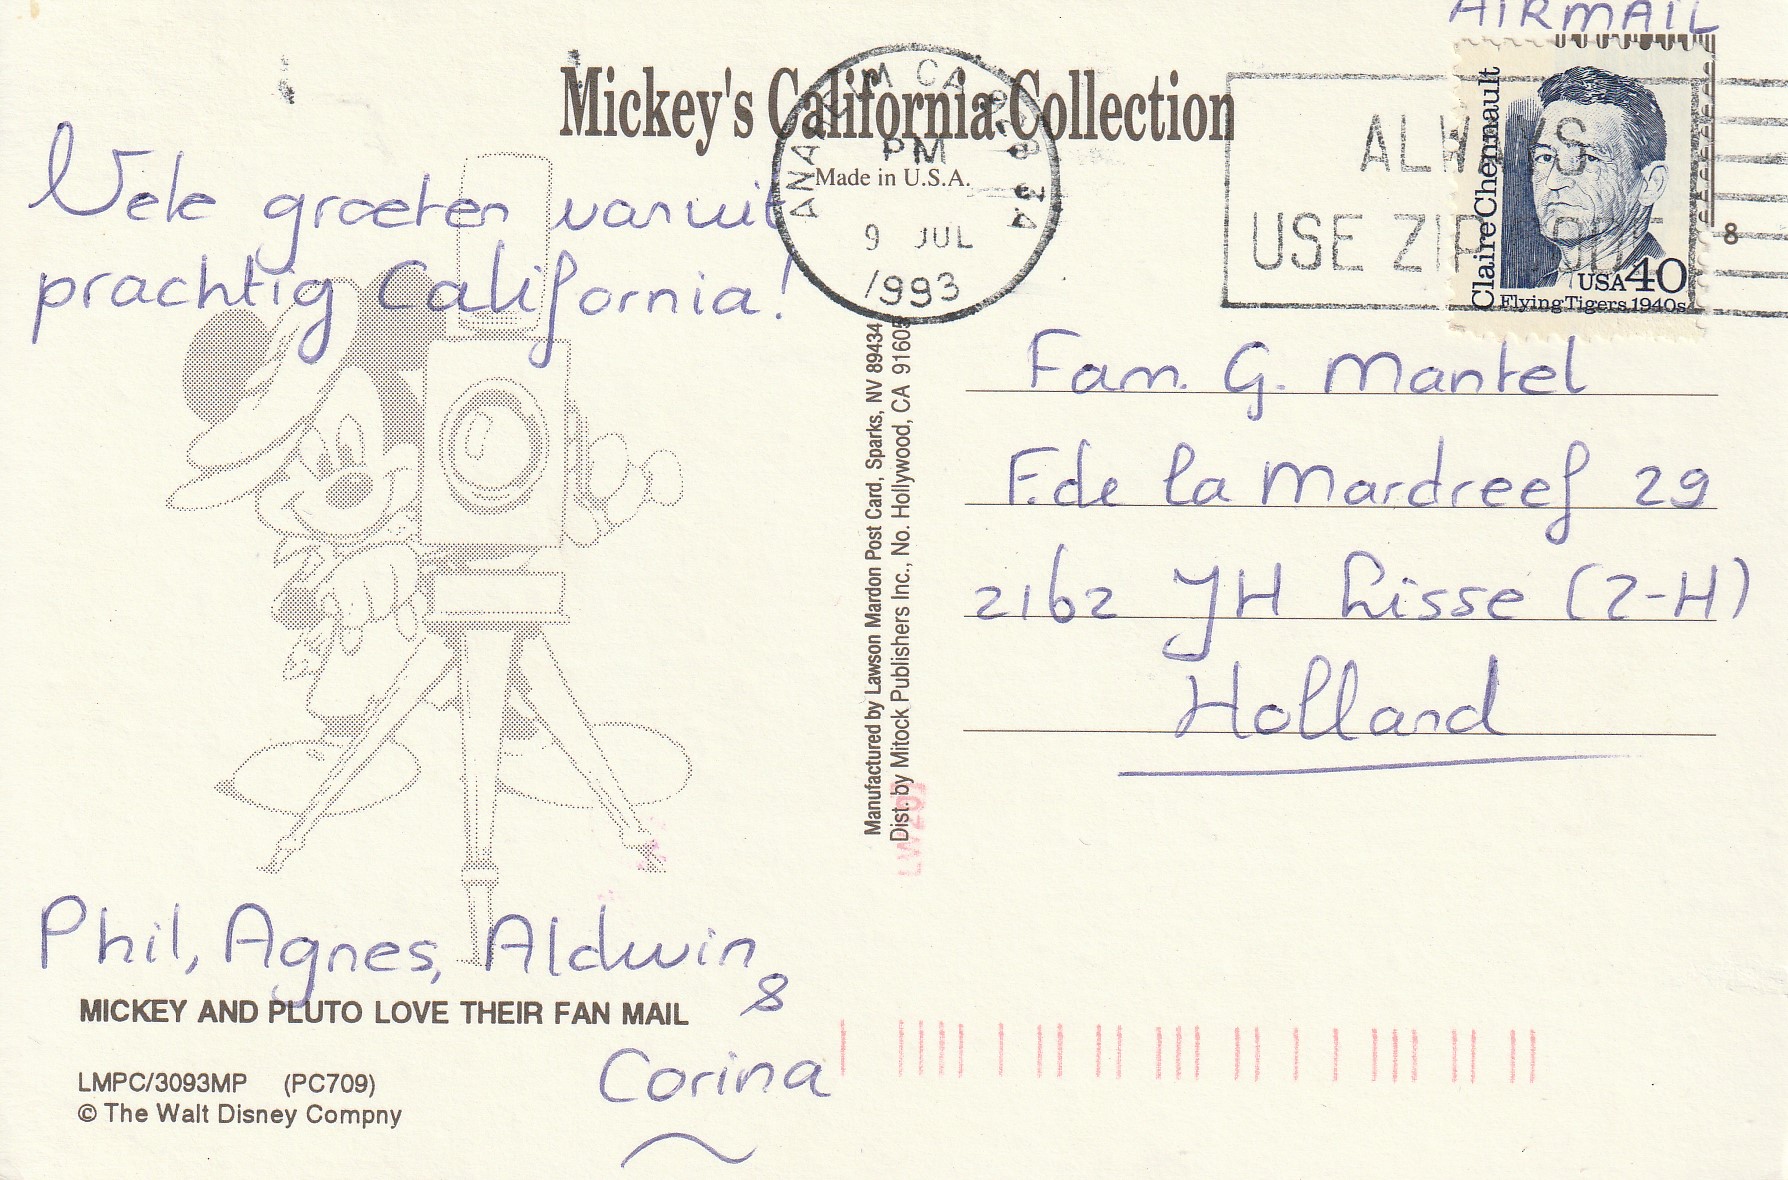 AIRMAIL
Mickey's California Collection
Made in U.S.A.
ANAHEIM CA
PM
9 JUL
1993
ALWAYS
USE ZIP CODE
Claire Chennault
USA 40
Flying Tigers, 1940s
8
Vele groeten vanuit
prachtig California!
Phil, Agnes, Aldwin
&
Corina
MICKEY AND PLUTO LOVE THEIR FAN MAIL
LMPC/3093MP (PC709)
© The Walt Disney Compny
Manufactured by Lawson Mardon Post Card, Sparks, NV 89434
Dist. by Mitock Publishers Inc., No. Hollywood, CA 91605
Fam. G. Mantel
F. de la Mardreef 29
2162 JH Lisse (Z-H)
Holland